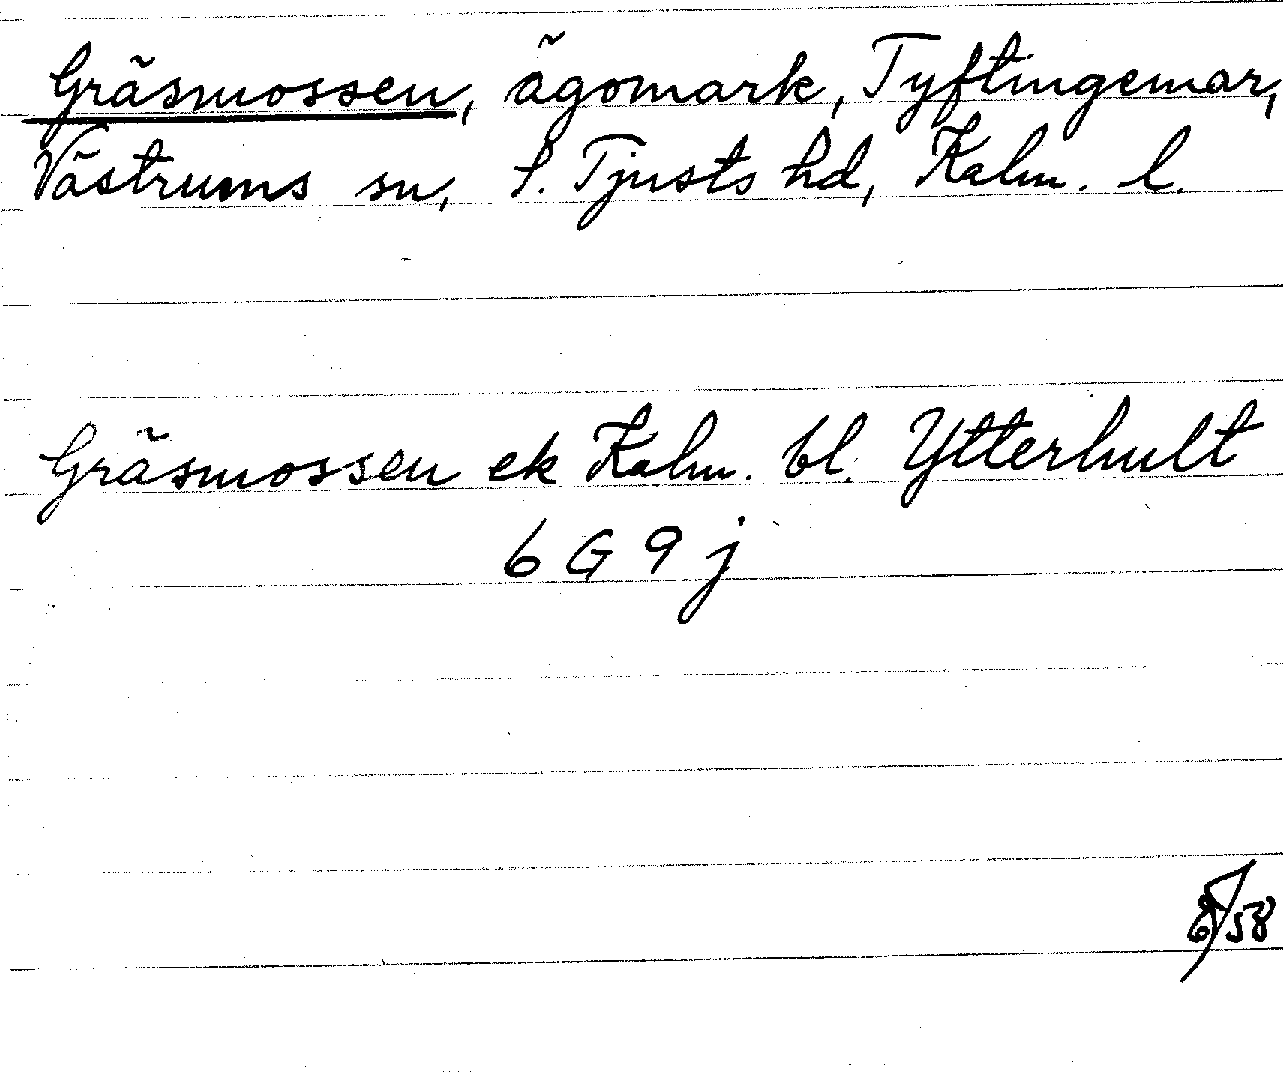 Gräsmossen, ägomark, Tyftingemar,
Västrums sn, S. Tjusts hd, Kalm. l.
Gräsmossen ek Kalm. bl. Ytterhult
6 G 9 j